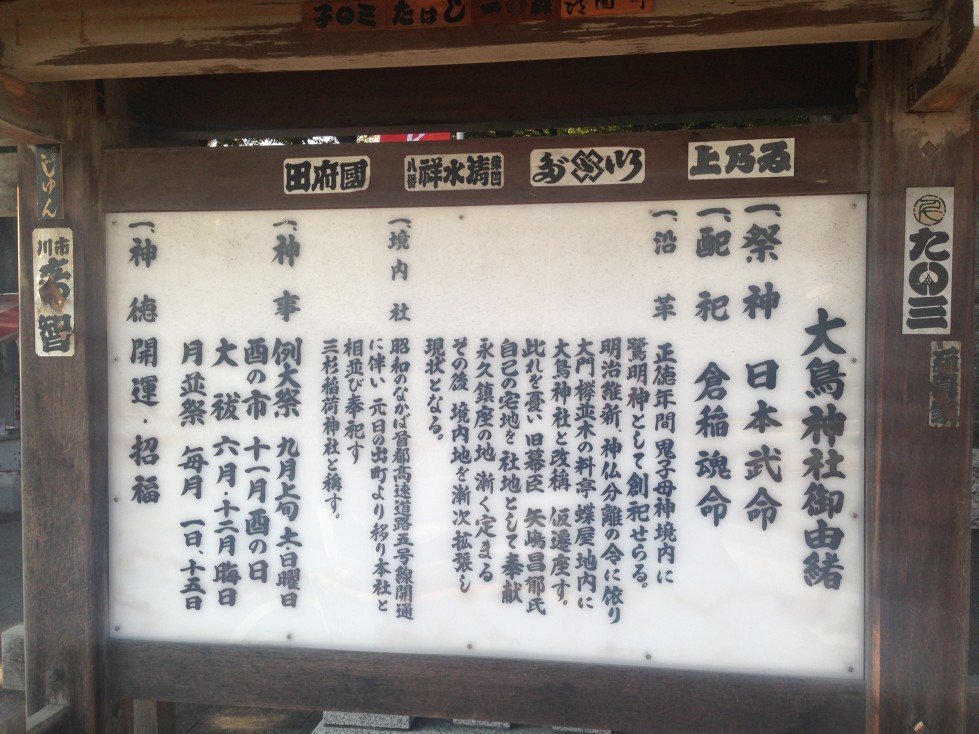 大鳥神社御由緒
一、祭神 日本武命
一、配祀 倉稲魂命
一、沿革 正徳年間 鬼子母神境内に
鷺明神として創祀せらる。
明治維新、神仏分離の令に依り
大門欅並木の料亭 蝶屋地内に
大鳥神社と改稱 仮遷座す。
此れを憂い 旧幕臣 矢嶋昌郁氏
自己の宅地を 社地として奉献
永久鎮座の地 漸く定まる
その後 境内地を漸次拡張し
現状となる。
一、境内社 昭和のなかば首都高速道路五号線開通
に伴い 元日の出町より移り本社と
相並び奉祀す
三杉稲荷神社と稱す。
一、神事 例大祭 九月上旬 土・日曜日
酉の市 十一月酉の日
大祓 六月・十二月晦日
月並祭 毎月 一日、十五日
一、神徳 開運・招福
清水祥
國府田
たの三
じゅん
市川